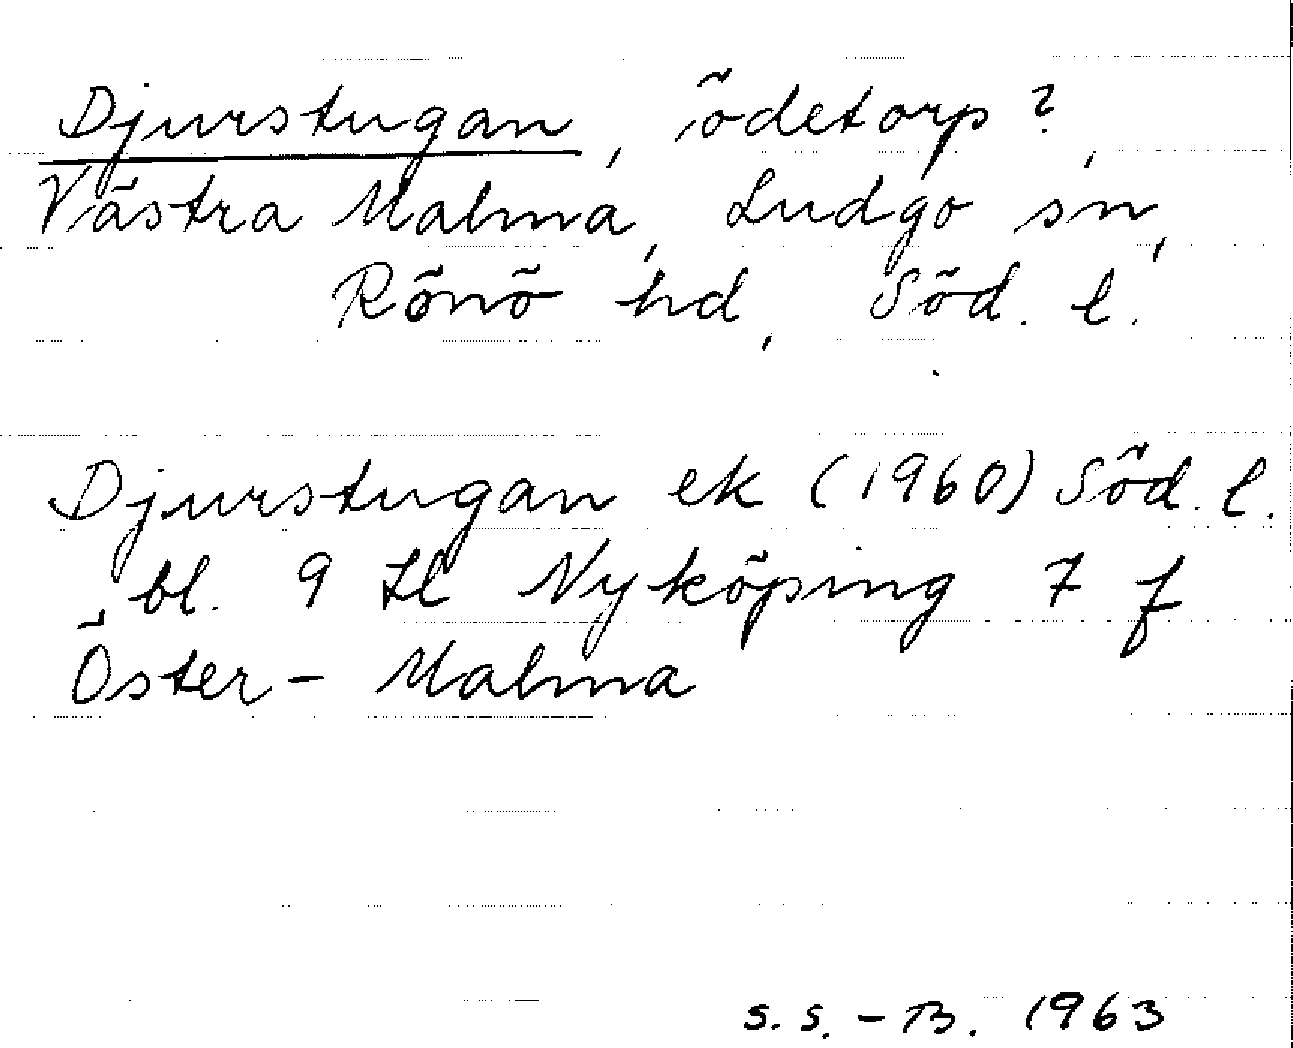 Djurstugan, ödetorp?,
Västra Malma, Ludgo sn,
Rönö hd, Söd. l.
Djurstugan ek (1960) Söd. l.
bl. 9 Nyköping 7 f
Öster-Malma
S.S.-B. 1963